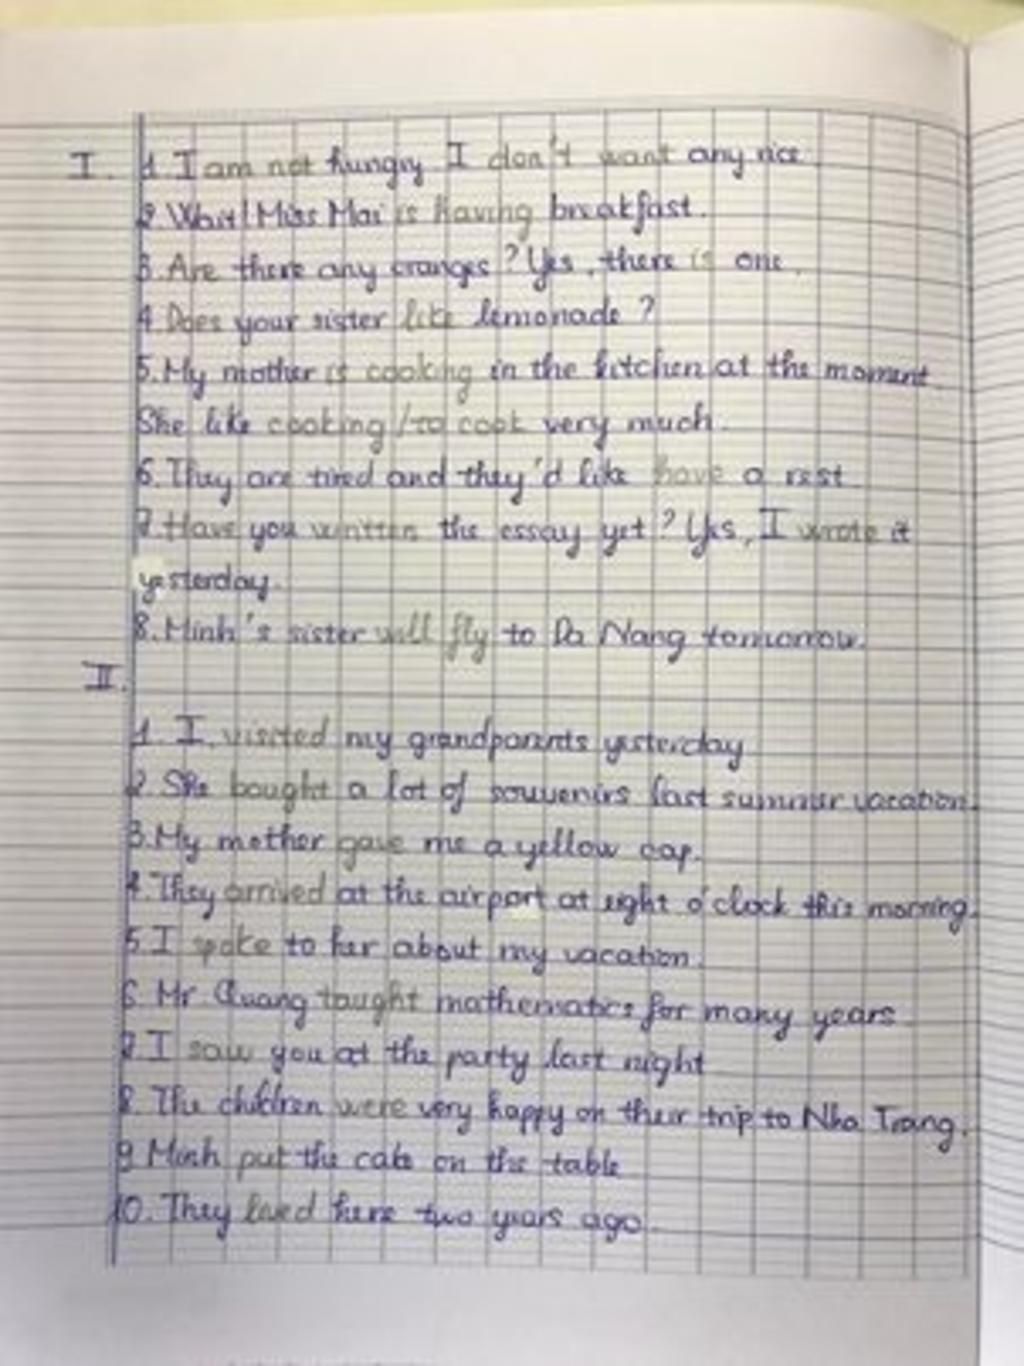 I. 1. I am not hungry I don't want any rice
2. Wait! Miss Mai is having breakfast.
3. Are there any oranges? Yes, there is one.
4. Does your sister like lemonade ?
5. My mother is cooking in the kitchen at the moment
She like cooking / to cook very much.
6. They are tired and they'd like have a rest
7. Have you written the essay yet? Yes, I wrote it
yesterday.
8. Minh's sister will fly to Da Nang tomorrow.
II.
1. I visited my grandparents yesterday
2. She bought a lot of souvenirs last summer vacation.
3. My mother gave me a yellow cap.
4. They arrived at the airport at eight o'clock this morning.
5. I spoke to her about my vacation.
6. Mr Quang taught mathematics for many years
7. I saw you at the party last night
8. The children were very happy on their trip to Nha Trang.
9 Minh put the cake on the table
10. They lived here two years ago.